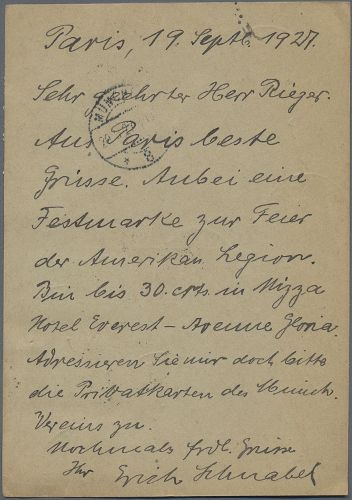 Paris, 19. Septb. 1927.
Sehr geehrter Herr Rieger.
Aus Paris beste
Grüsse. Anbei eine
Festmarke zur Feier
der Amerikan. Legion.
Bin bis 30. crts. in Nizza
Hotel Everest – Avenue Gloria.
Adressieren Sie mir doch bitte
die Privatkarten des Münch.
Vereins zu.
Nochmals frdl. Grüsse
Ihr Erich Schnabel